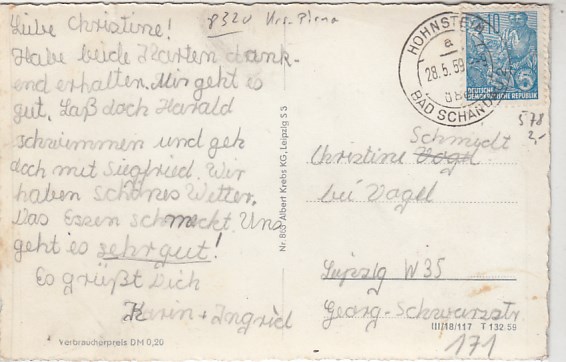 Liebe Christine!
Habe beide Karten dank-
end erhalten. Mir geht es
gut. Laß doch Harald
schwimmen und geh
doch mit Siegfried. Wir
haben schönes Wetter.
Das Essen schmeckt. Uns
geht es sehr gut!
Es grüßt Dich
Karin + Ingrid
Verbraucherpreis DM 0,20
8320 Krs. Pirna
Nr. 863 Albert Krebs KG, Leipzig S 3
HOHNSTEIN
a
28.5.59
BAD SCHANDAU
10
5
DEUTSCHE
DEMOKRATISCHE REPUBLIK
578
2,-
Schmidt
Christine Vogl
bei Vogel
Leipzig W35
Georg-Schwarzstr
III/18/117 T 132 59
171